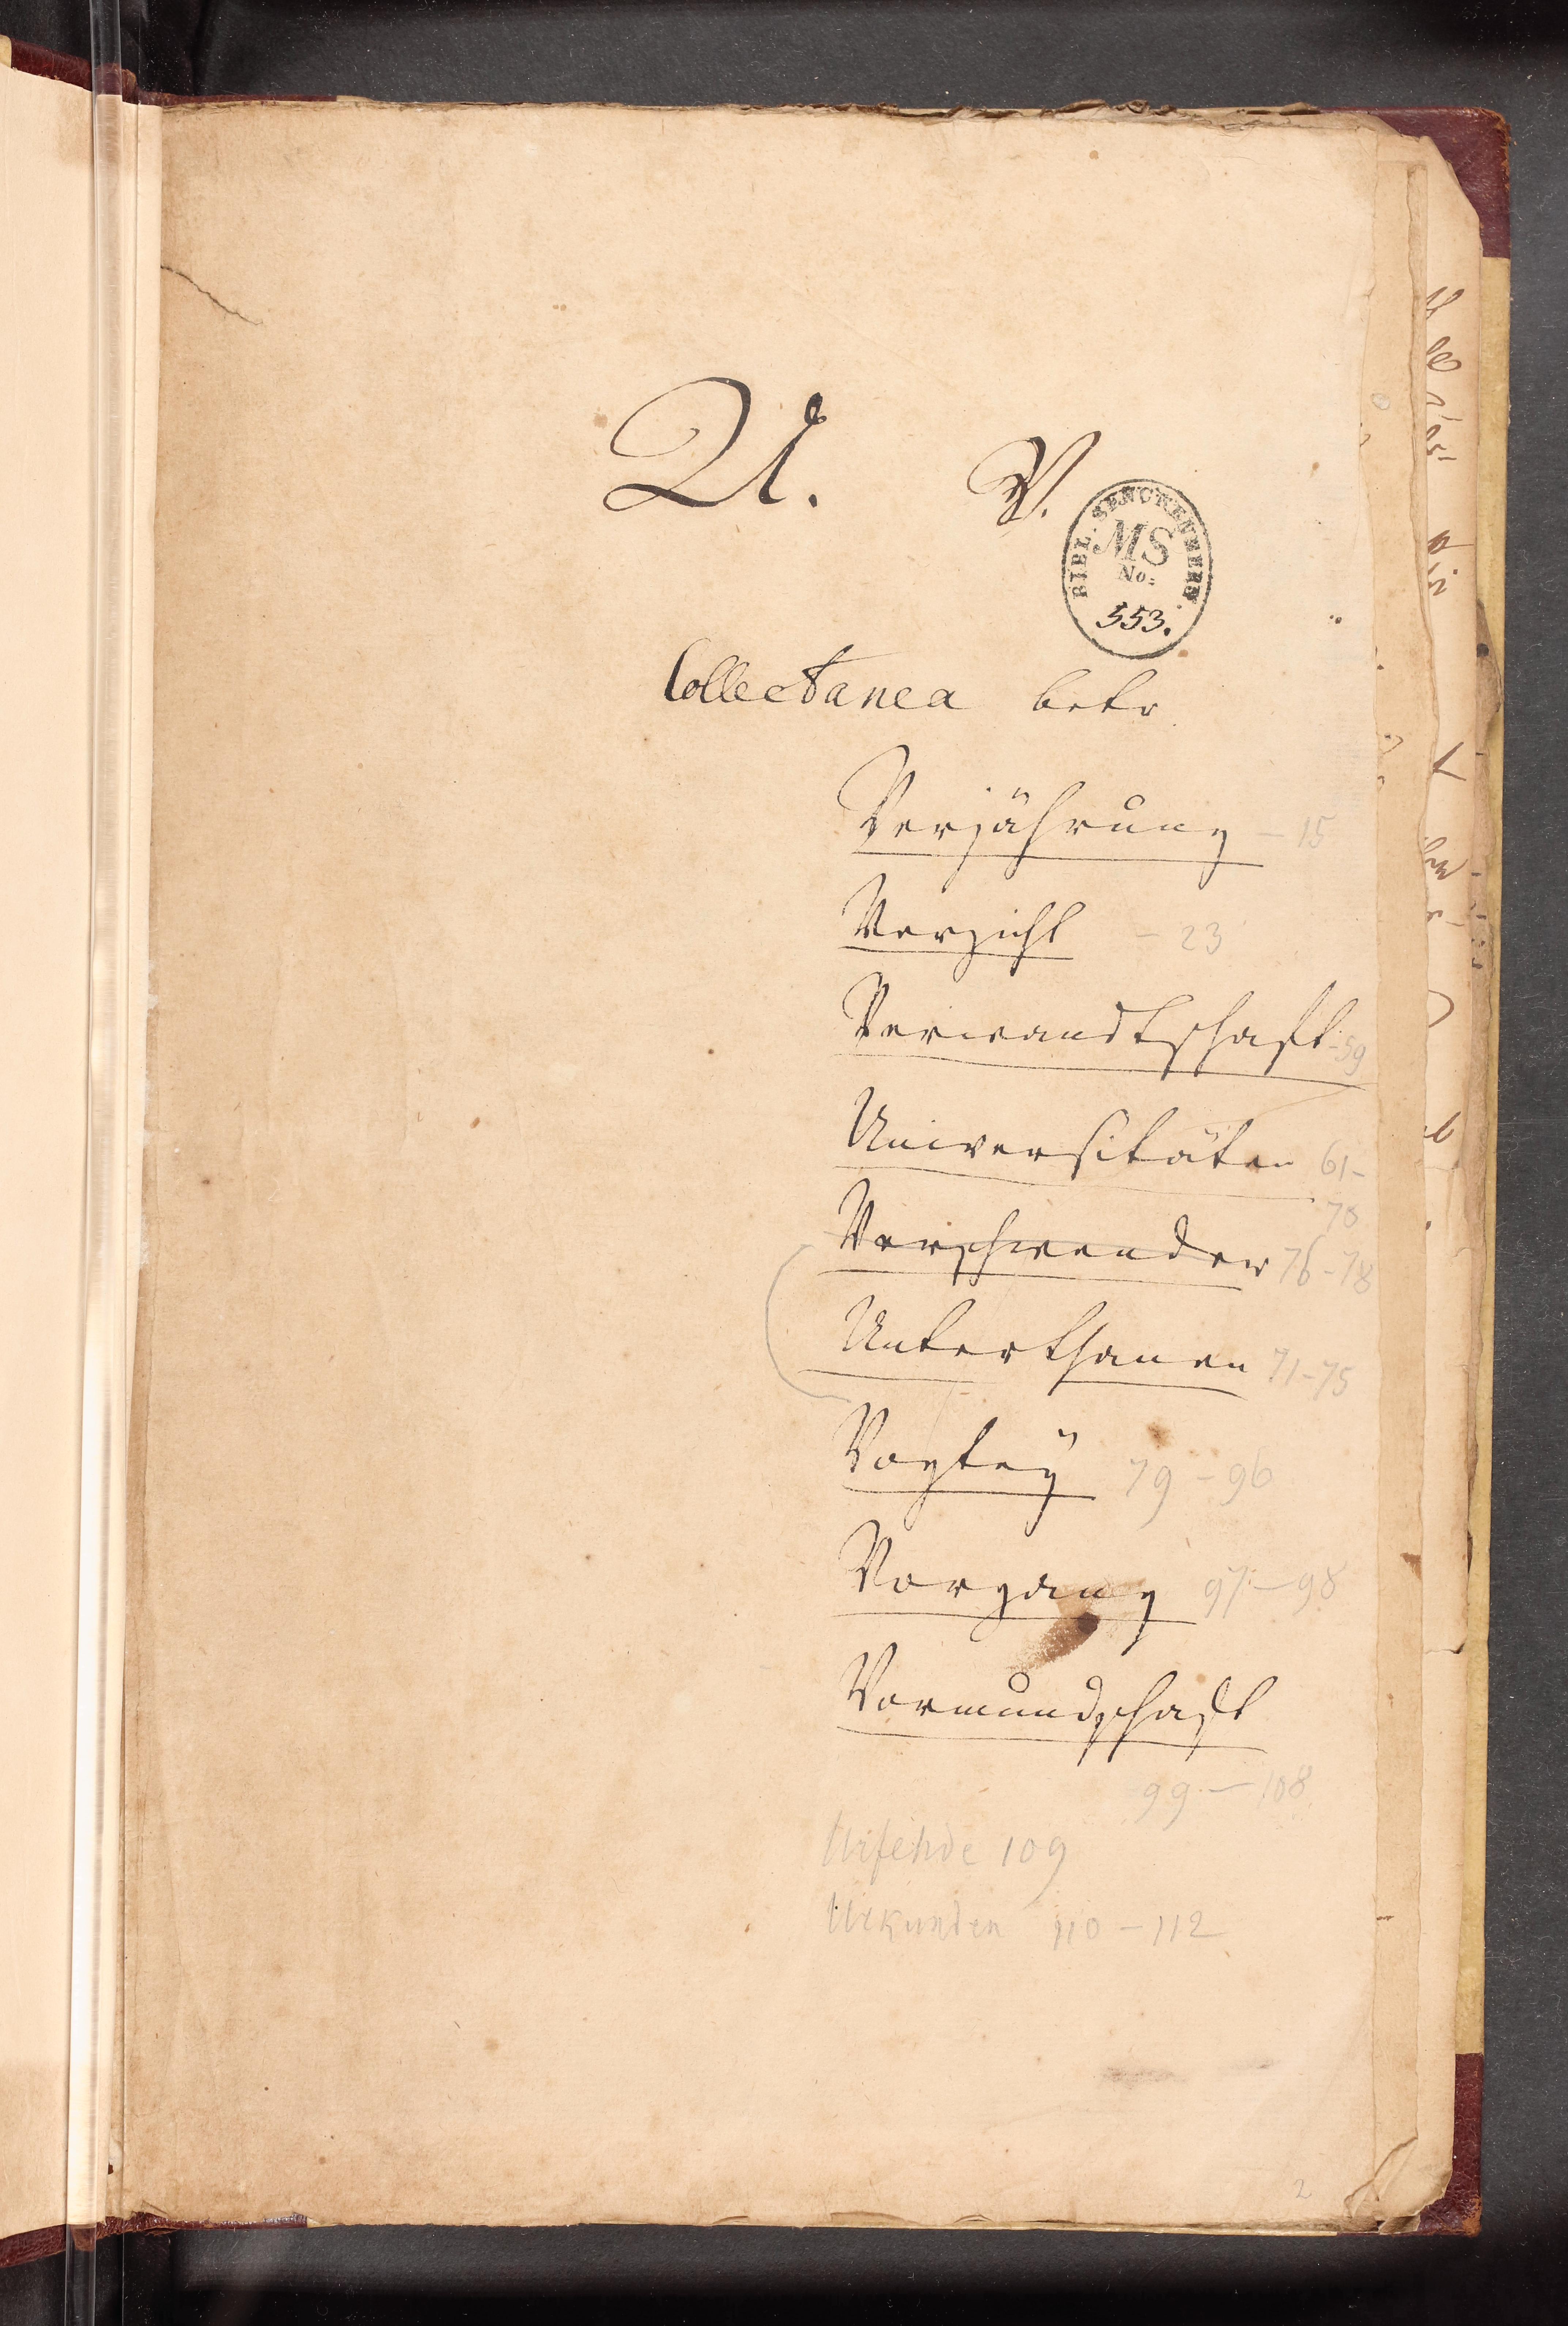 U. V.
BIBL. SENCKENBERG.
MS
No:
553.
Collectanea betr
Verjährung - 15
Verzicht - 23
Verwandtschaft - 59
Universitäten 61-
70
Verschwender 76-78
Unterthanen 71-75
Vogtey 79-96
Vorgang 97-98
Vormundschaft
99-108
Urfehde 109
Urkunden 110-112
2